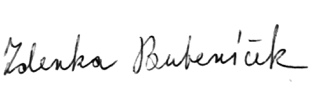 Zdenka Bubeníček